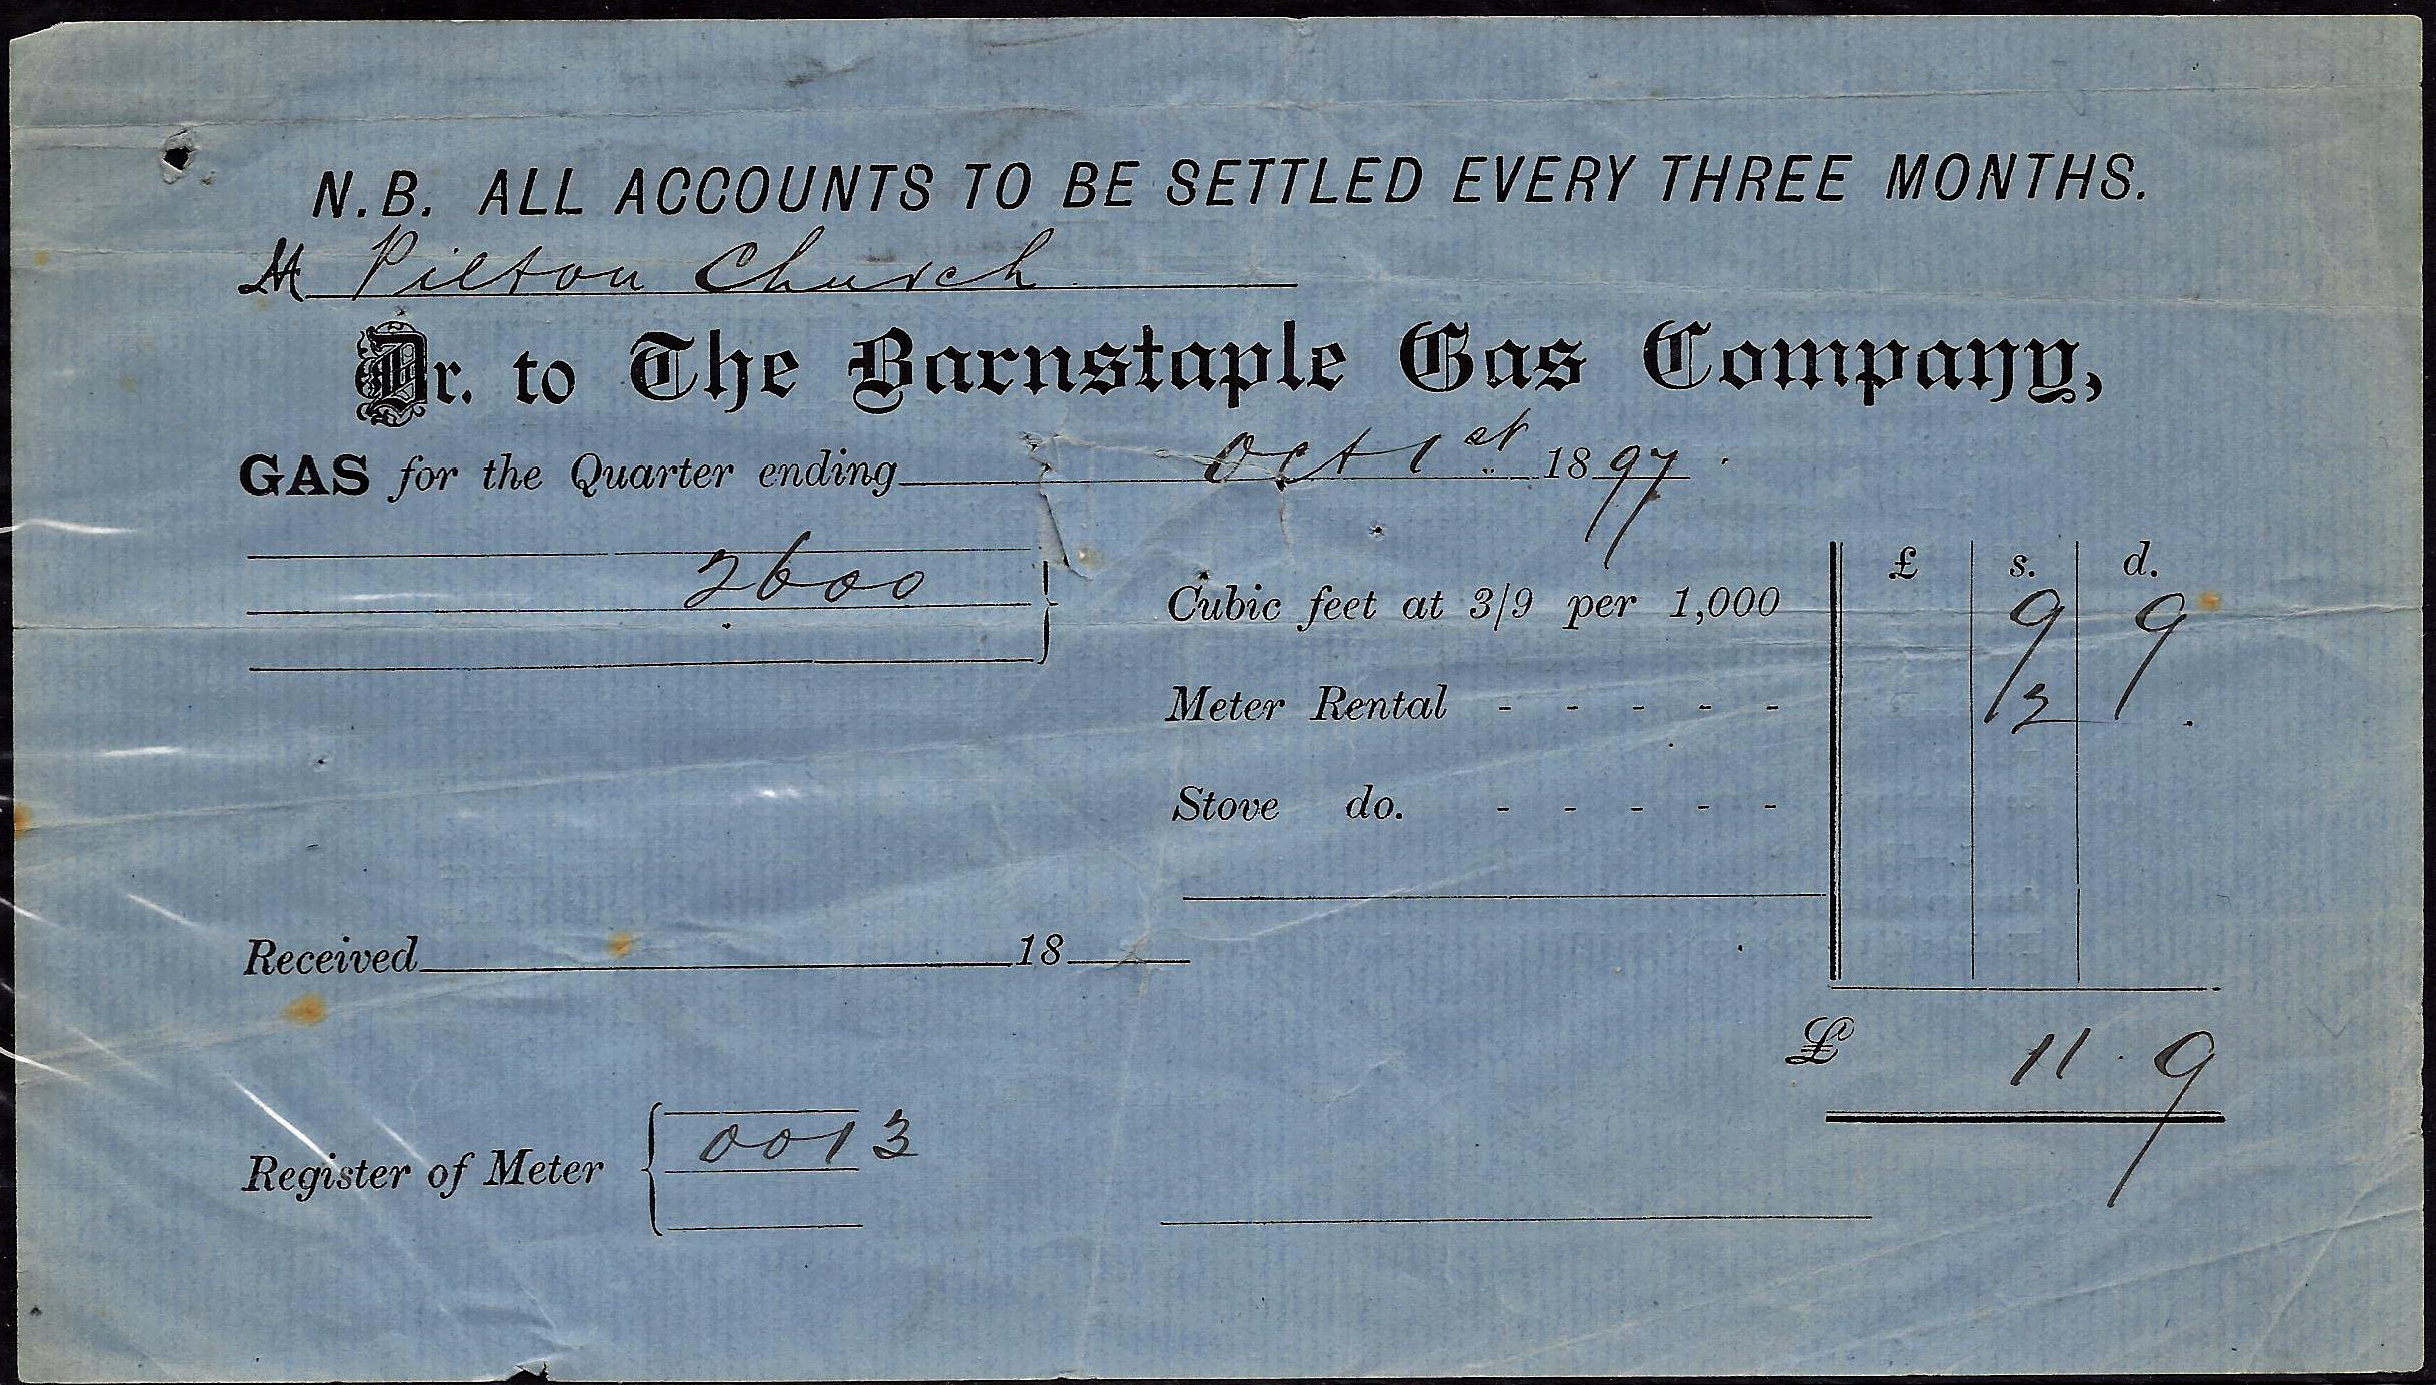 N.B. ALL ACCOUNTS TO BE SETTLED EVERY THREE MONTHS.
M Pilton Church
Dr. to The Barnstaple Gas Company,
GAS for the Quarter ending Oct 1st 1897
£ s. d.
2600 Cubic feet at 3/9 per 1,000 9 9
Meter Rental - - - - - 2 .
Stove do. - - - - -
Received 18
£ 11 . 9
Register of Meter 0013